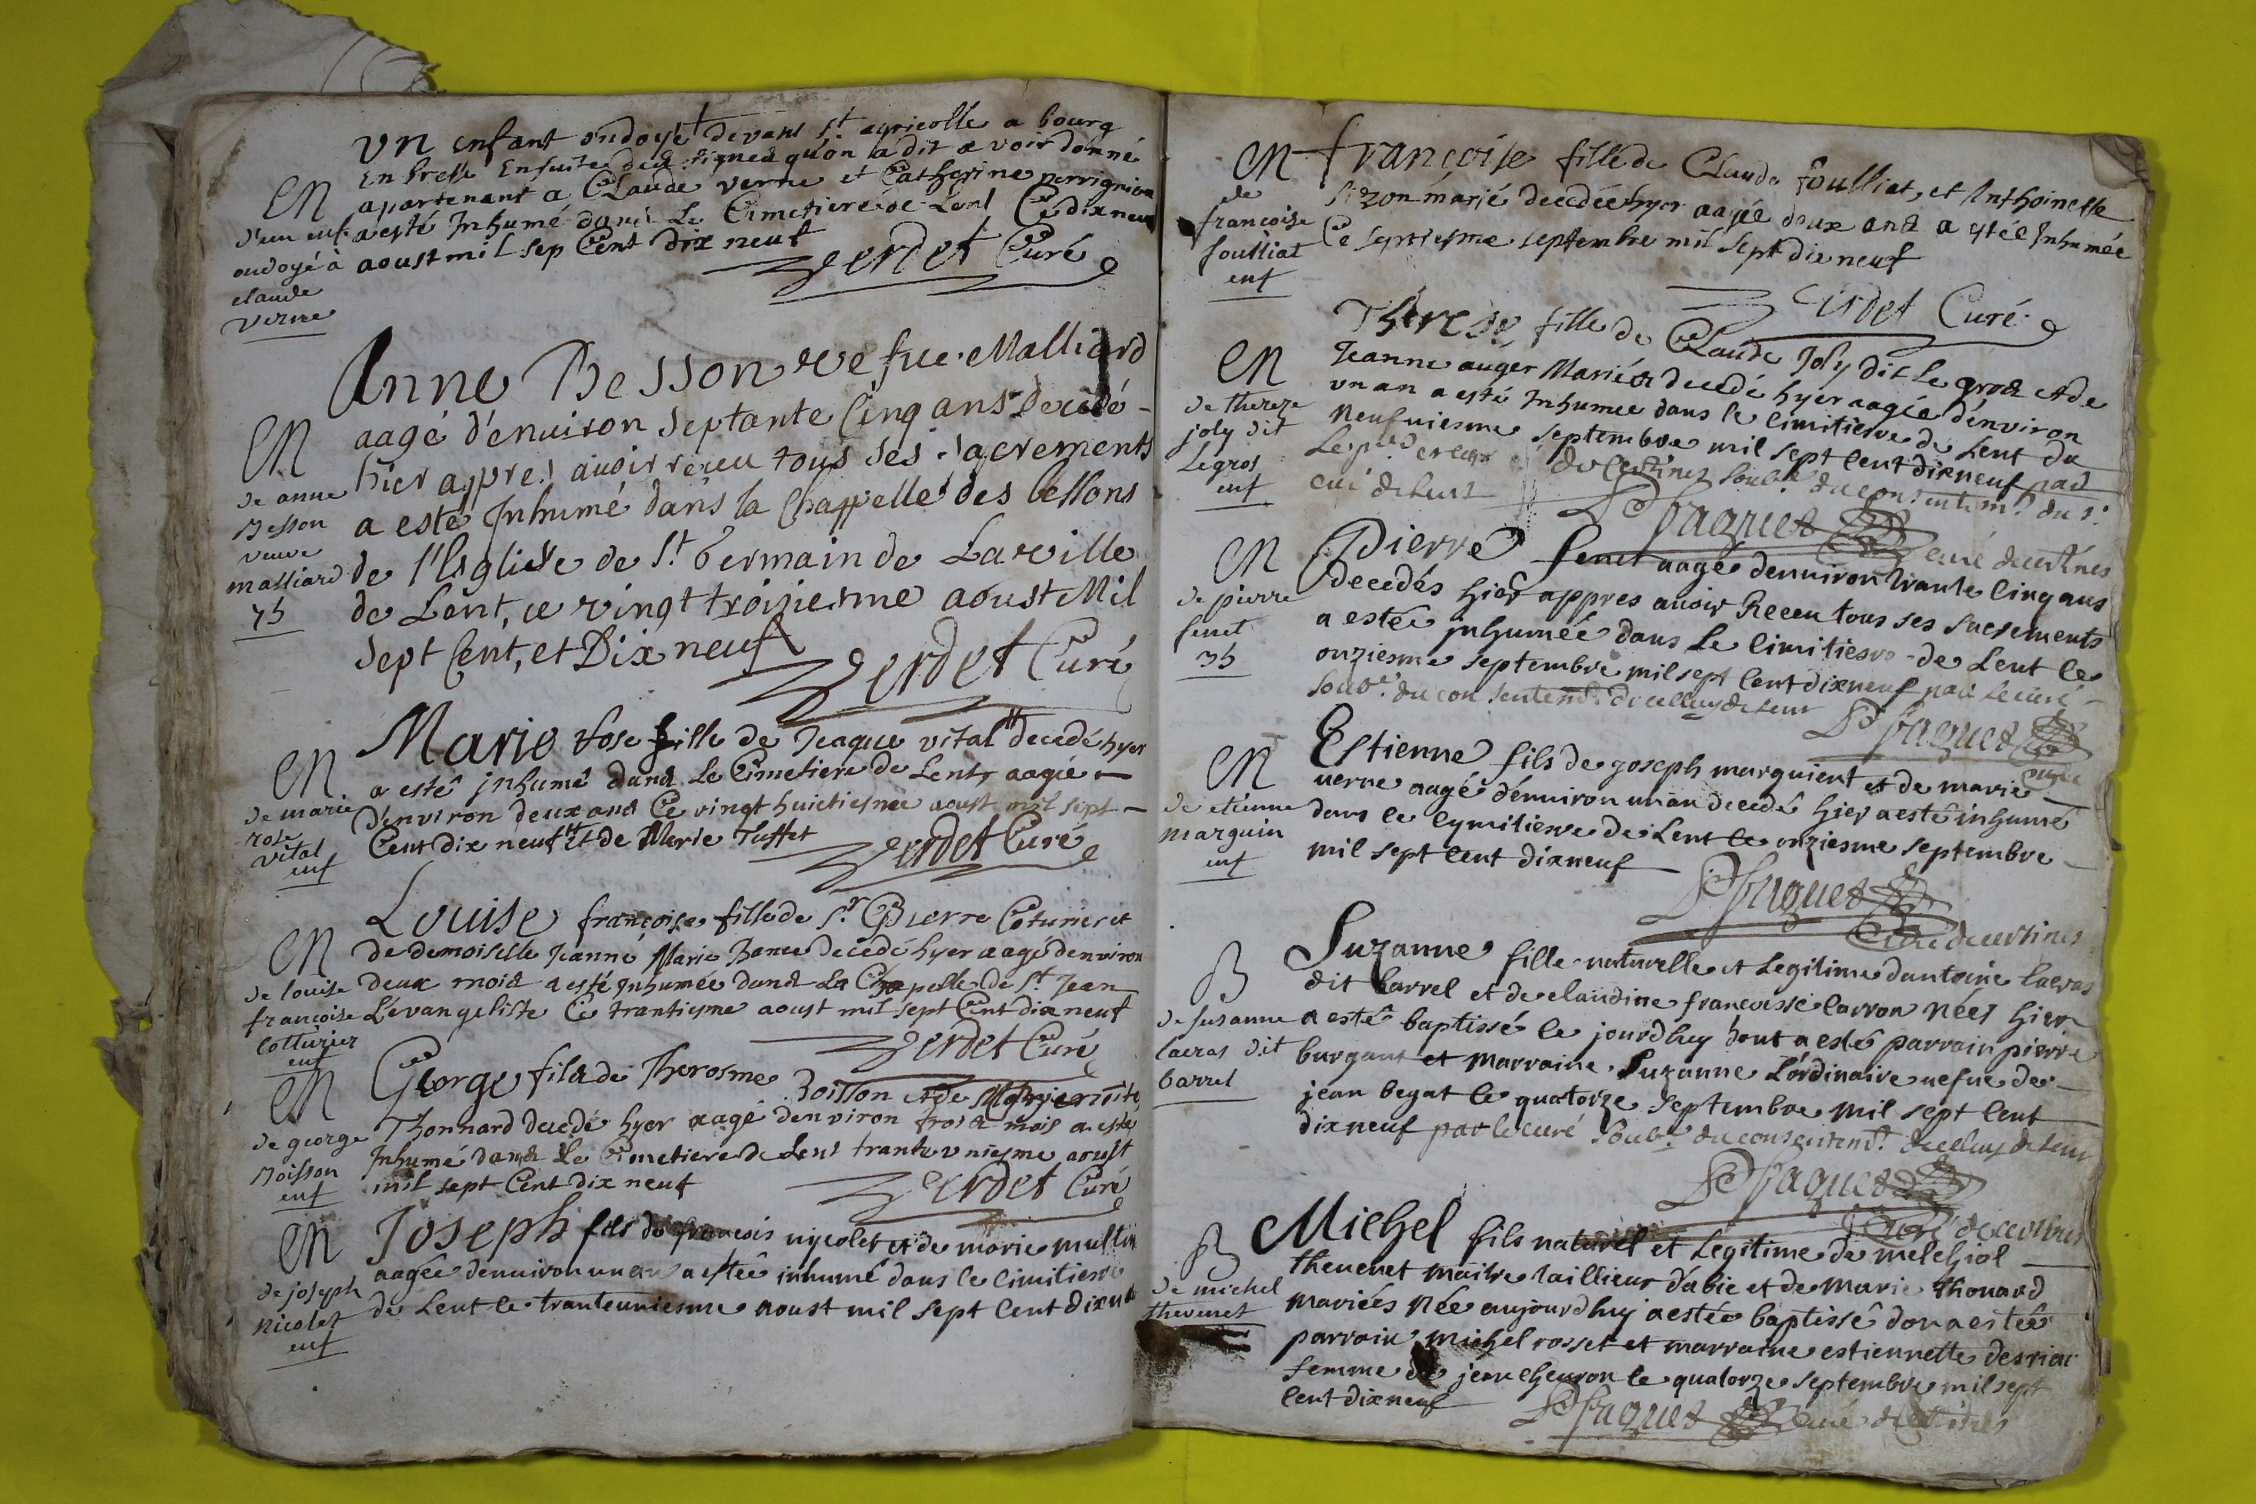 un enfant ondoyé devant St agricolle a bourg
En bresse Ensuite des signes qu'on a dit avoir donné
apartenant a Claude verne et Catherine perrignion
a esté Inhumé dans Le Cimetiere de Lent Ce dix neuf
aoust mil sep Cent dix neuf
Verdet Curé
EN
d'un enf
ondoyé à
claude
verne
Anne Besson vefue Malliard
aagé d'enuiron septante Cinq ans decedé
hier appres auoir receu tous ses sacrements
a esté Inhumé dans la Chappelle des bessons
de l'Esglise de St Germain de La ville
de Lent, ce vingt troisiesme aoust Mil
sept Cent, et Dix neuf
Verdet Curé
EN
de anne
Besson
veuve
malliard
75
Marie Rose fille de Jaque vital decedé hyer
a esté inhumé dans Le Cimetiere de Lent aagée
d'environ deux ans Ce vingt huictiesme aoust mil sept
Cent dix neuf et de Marie Tuffet
Verdet Curé
EN
de marie
rose
vital
enf
Louise françoise fille de Sr Pierre Coturier et
de demoiselle Jeanne Marie decedé hyer aagé denviron
deux mois a esté Inhumée dans La Chapelle de St Jean
L'évangeliste Ce trantiesme aoust mil sept Cent dix neuf
Verdet Curé
EN
de louise
françoise
Cotturier
enf
George fils de Jherosme Boisson et de
Thonnard decedé hyer aagé denviron trois mois a esté
Inhumé dans Le Cimetiere de Lent trante vniesme aoust
mil sept Cent dix neuf
Verdet Curé
EN
de george
Boisson
enf
Joseph fils de francois nycolet et de marie
aagée denuiron un an a estée inhumé dans le Cimitiere
de Lent le tranteuniesme aoust mil sept Cent dixneuf
EN
de joseph
Nicolet
enf
françoise fille de Claude foulliat, et Anthoinette
marié decedée hyer aagée deux ans a estée Inhumée
Ce septiesme septembre mil sept dix neuf
Verdet Curé
EN
de
françoise
foulliat
enf
Therese, fille de Claude Joly dit Le gros et de
Jeanne auger Mariés decedé hyer aagée d'environ
vn an a esté Inhumee dans le Cimitiere de Lent du
Neufuiesme septembre mil sept Cent dixneuf par
de Certines soub.é du consentem.t du S.r
curé de Lent
Paquet
curé de certines
EN
de thereze
joly dit
Legros
enf
Pierre feuet aagé denuiron trante Cinq ans
decedés hier appres auoir Receu tous ses sacrements
a estée inhumée dans Le Cimitiere de Lent le
onziesme septembre mil sept Cent dixneuf par Le curé
soub.é du consentem.t de celluy de Lent
Paquet
curé
EN
de pierre
feuet
35
Estienne fils de joseph marguient et de marie
uerne aagé dénuiron un an decedé hier a esté inhumé
dans le Cymitiere de Lent le onziesme septembre
mil sept Cent dixneuf
Paquet
Curé de certines
EN
de etienne
marguin
enf
Suzanne fille naturelle et Legitime dantoine Lacras
dit barrel et de claudine francoisse Carron Née hier
a esté baptissé le jourdhuy dont a esté parrain pierre
burgant et marraine Suzanne Lordinaire uefue de
jean begat le quatorze septembre mil sept Cent
dixneuf par le curé soub.é du consentem.t de celluy de Lent
Paquet
Curé de certines
B
de suzanne
Lacras dit
barrel
Michel fils naturel et Legitime de melchiol
theuenet maitre taillieur d'abie et de Marie thonard
mariés Née aujourdhuy a estée baptissé don a esté
parrain michel rosset et marraine estiennette
femme de jean cheuron le quatorze septembre mil sept
Cent dixneuf
Paquet curé de certines
B
de michel
thevenet